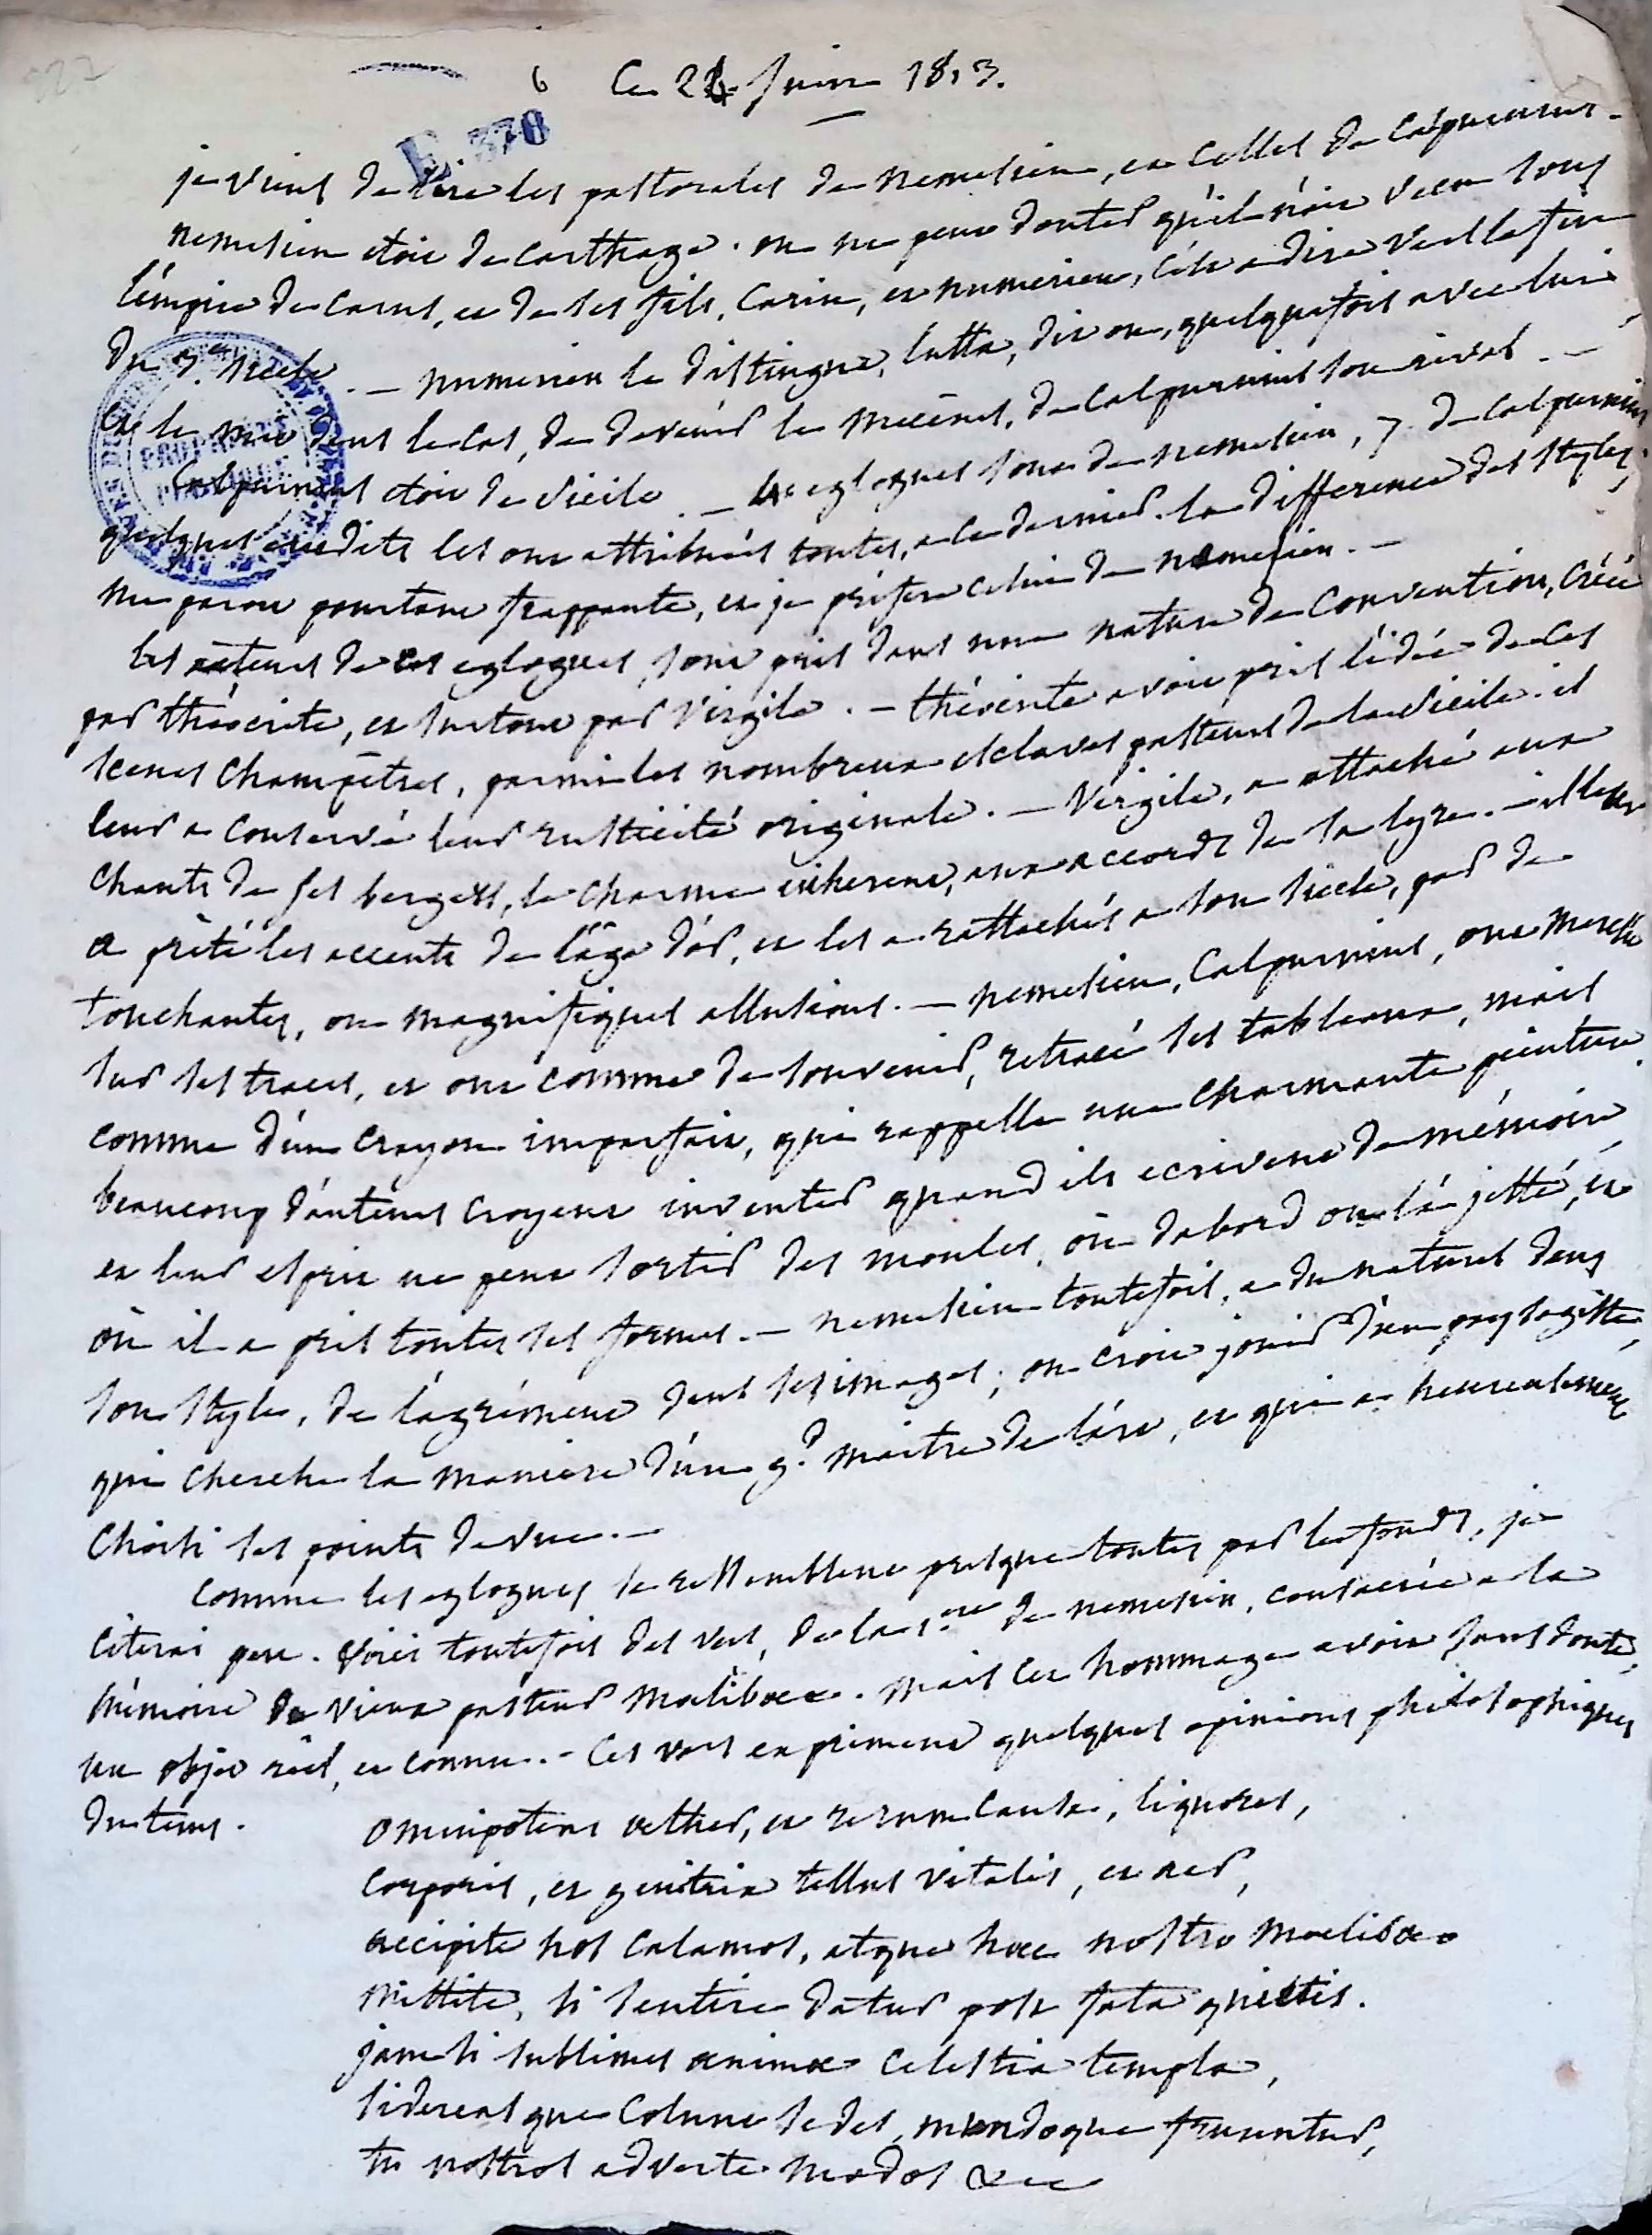 6 Ce 24 Juin 1813.
E. 378
je viens de lire les pastorales de nemesien, et celles de Calpurnius.
nemesien etoit de Carthage. on ne peut douter qu'il n'ait vecu sous
l'empire de Carus, et de ses fils, Carin, et numerien, c'est a dire vers la fin
du 3.e siecle. — numerien le distingua, lutta, dit on, quelquefois avec lui
et le mit dans le cas, de devenir le mecènes, de Calpurnius son rival. —
Calpurnius etoit de Sicile. — 4 eglogues sont de nemesien, 7 de Calpurnius
quelques erudits les ont attribuées toutes, a ce dernier. la difference des styles,
me paroit pourtant frappante, et je préfère celui de nemesien. —
les acteurs de ces eglogues, sont pris dans une nature de convention, créée
par théocrite, et surtout par Virgile. — théocrite avoit pris l'idée de ces
scenes champêtres, parmi les nombreux esclaves pasteurs de la Sicile. il
leur a conservé leur rusticité originale. — Virgile, a attaché aux
chants de ses bergers, le charme inherent, aux accords de sa lyre. — il leur
a prêté les accents de l'âge d'or, et les a rattachés a son siecle, par de
touchantes, ou magnifiques allusions. — nemesien, Calpurnius, ont marché
sur ses traces, et ont comme de souvenir, retracé ses tableaux, mais
comme d'un crayon imparfait, qui rappelle une charmante peinture.
beaucoup d'auteurs croyent inventer quand ils ecrivent de mémoire,
et leur esprit ne peut sortir des moules, où d'abord on l'a jetté, et
où il a pris toutes ses formes. — nemesien toutefois, a du naturel dans
son style, de l'agrément dans ses images; on croit jouir d'un paysagiste,
qui cherche la maniere d'un g.d maitre de l'art, et qui a heureusement
choisi ses points de vue. —
comme les eglogues se ressemblent presque toutes par le fonds, je
citerai peu. voici toutefois des vers, de la 1.ere de nemesien, consacrée a la
mémoire du vieux pasteur Maelibœe. mais cet hommage avoit sans doute,
un objet réel, et connu. - Ces vers expriment quelques opinions philosophiques
du tems.
omnipotens aether, et rerum causae, liquores,
corporis, et genitrix tellus vitalis, et aer,
accipite hos calamos, atque haec nostro Maeliboeo
mittite, si sentire datur post fata quietis.
jam si sublimes animae celestia templa,
sidereasque colunt sedes, mundoque fruuntur,
tu nostros adverte modos &c